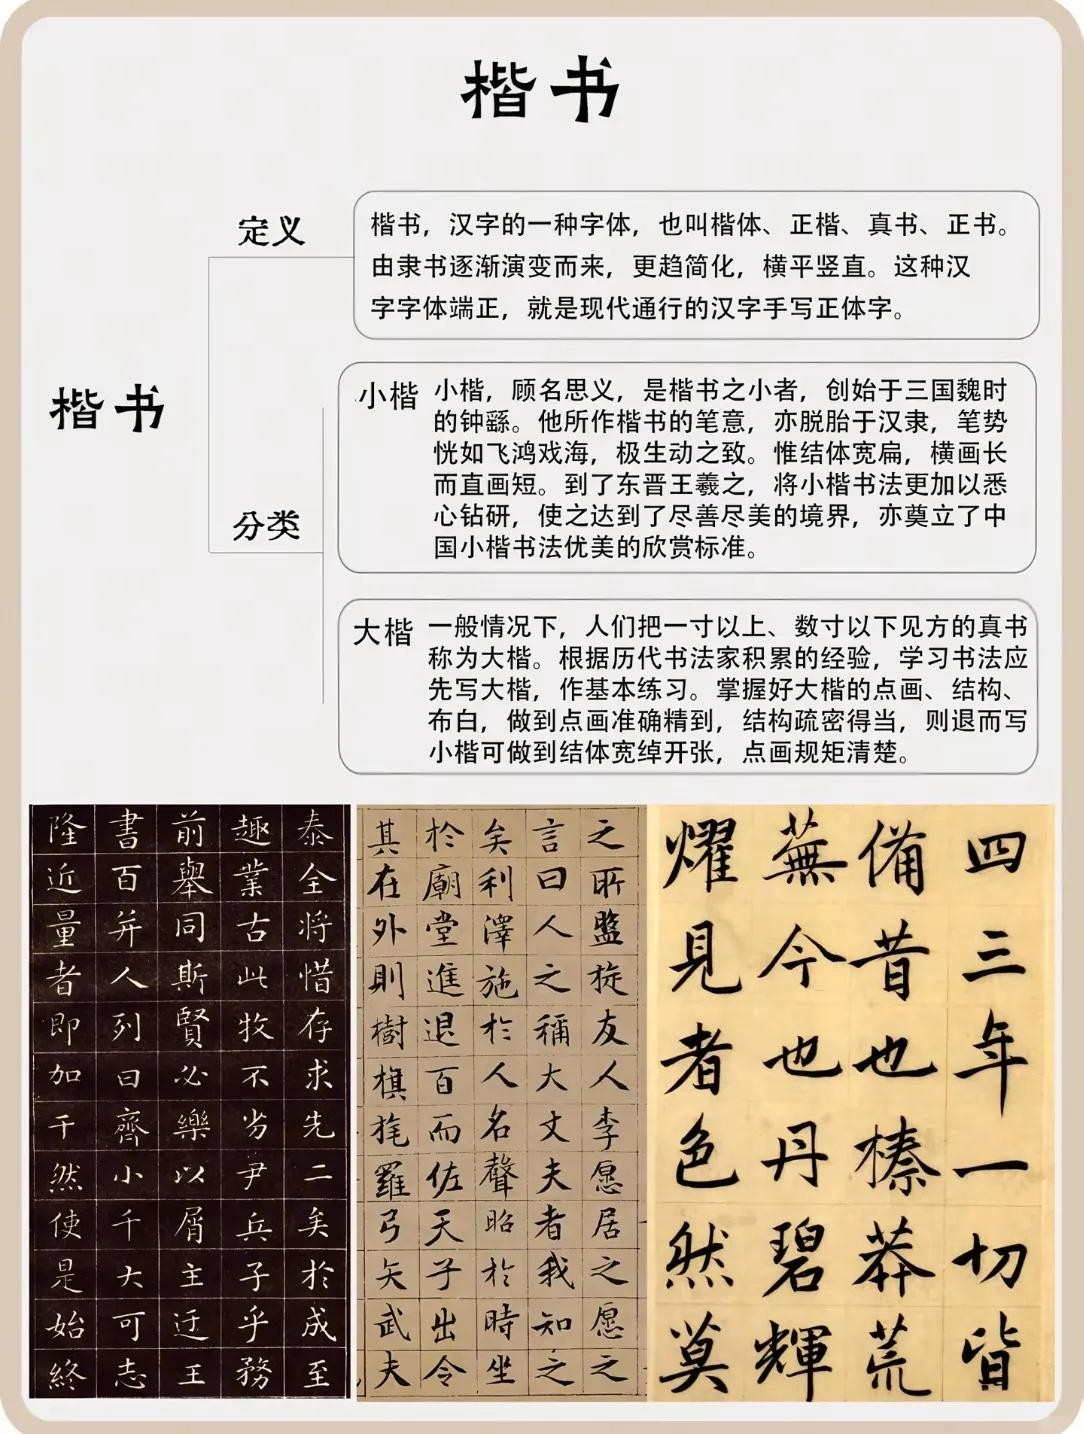 楷书
楷书
定义
楷书，汉字的一种字体，也叫楷体、正楷、真书、正书。
由隶书逐渐演变而来，更趋简化，横平竖直。这种汉
字字体端正，就是现代通行的汉字手写正体字。
分类
小楷
小楷，顾名思义，是楷书之小者，创始于三国魏时
的钟繇。他所作楷书的笔意，亦脱胎于汉隶，笔势
恍如飞鸿戏海，极生动之致。惟结体宽扁，横画长
而直画短。到了东晋王羲之，将小楷书法更加以悉
心钻研，使之达到了尽善尽美的境界，亦奠立了中
国小楷书法优美的欣赏标准。
大楷
一般情况下，人们把一寸以上、数寸以下见方的真书
称为大楷。根据历代书法家积累的经验，学习书法应
先写大楷，作基本练习。掌握好大楷的点画、结构、
布白，做到点画准确精到，结构疏密得当，则退而写
小楷可做到结体宽绰开张，点画规矩清楚。
泰全将惜存求先二矣於成至
趣業古此牧不劣尹兵子乎務
前舉同斯賢必樂以屑主迁王
書百并人列曰齊小千大可志
隆近量者即加干然使是始終
之所盤旋友人李愿居之愿之
言曰人之稱大丈夫者我知之
矣利澤施於人名聲昭於時坐
於廟堂進退百而佐天子出令
其在外則樹旗旄羅弓矢武夫
四三年一切皆
備昔也榛莽荒
蕪今也丹碧輝
耀見者色然莫